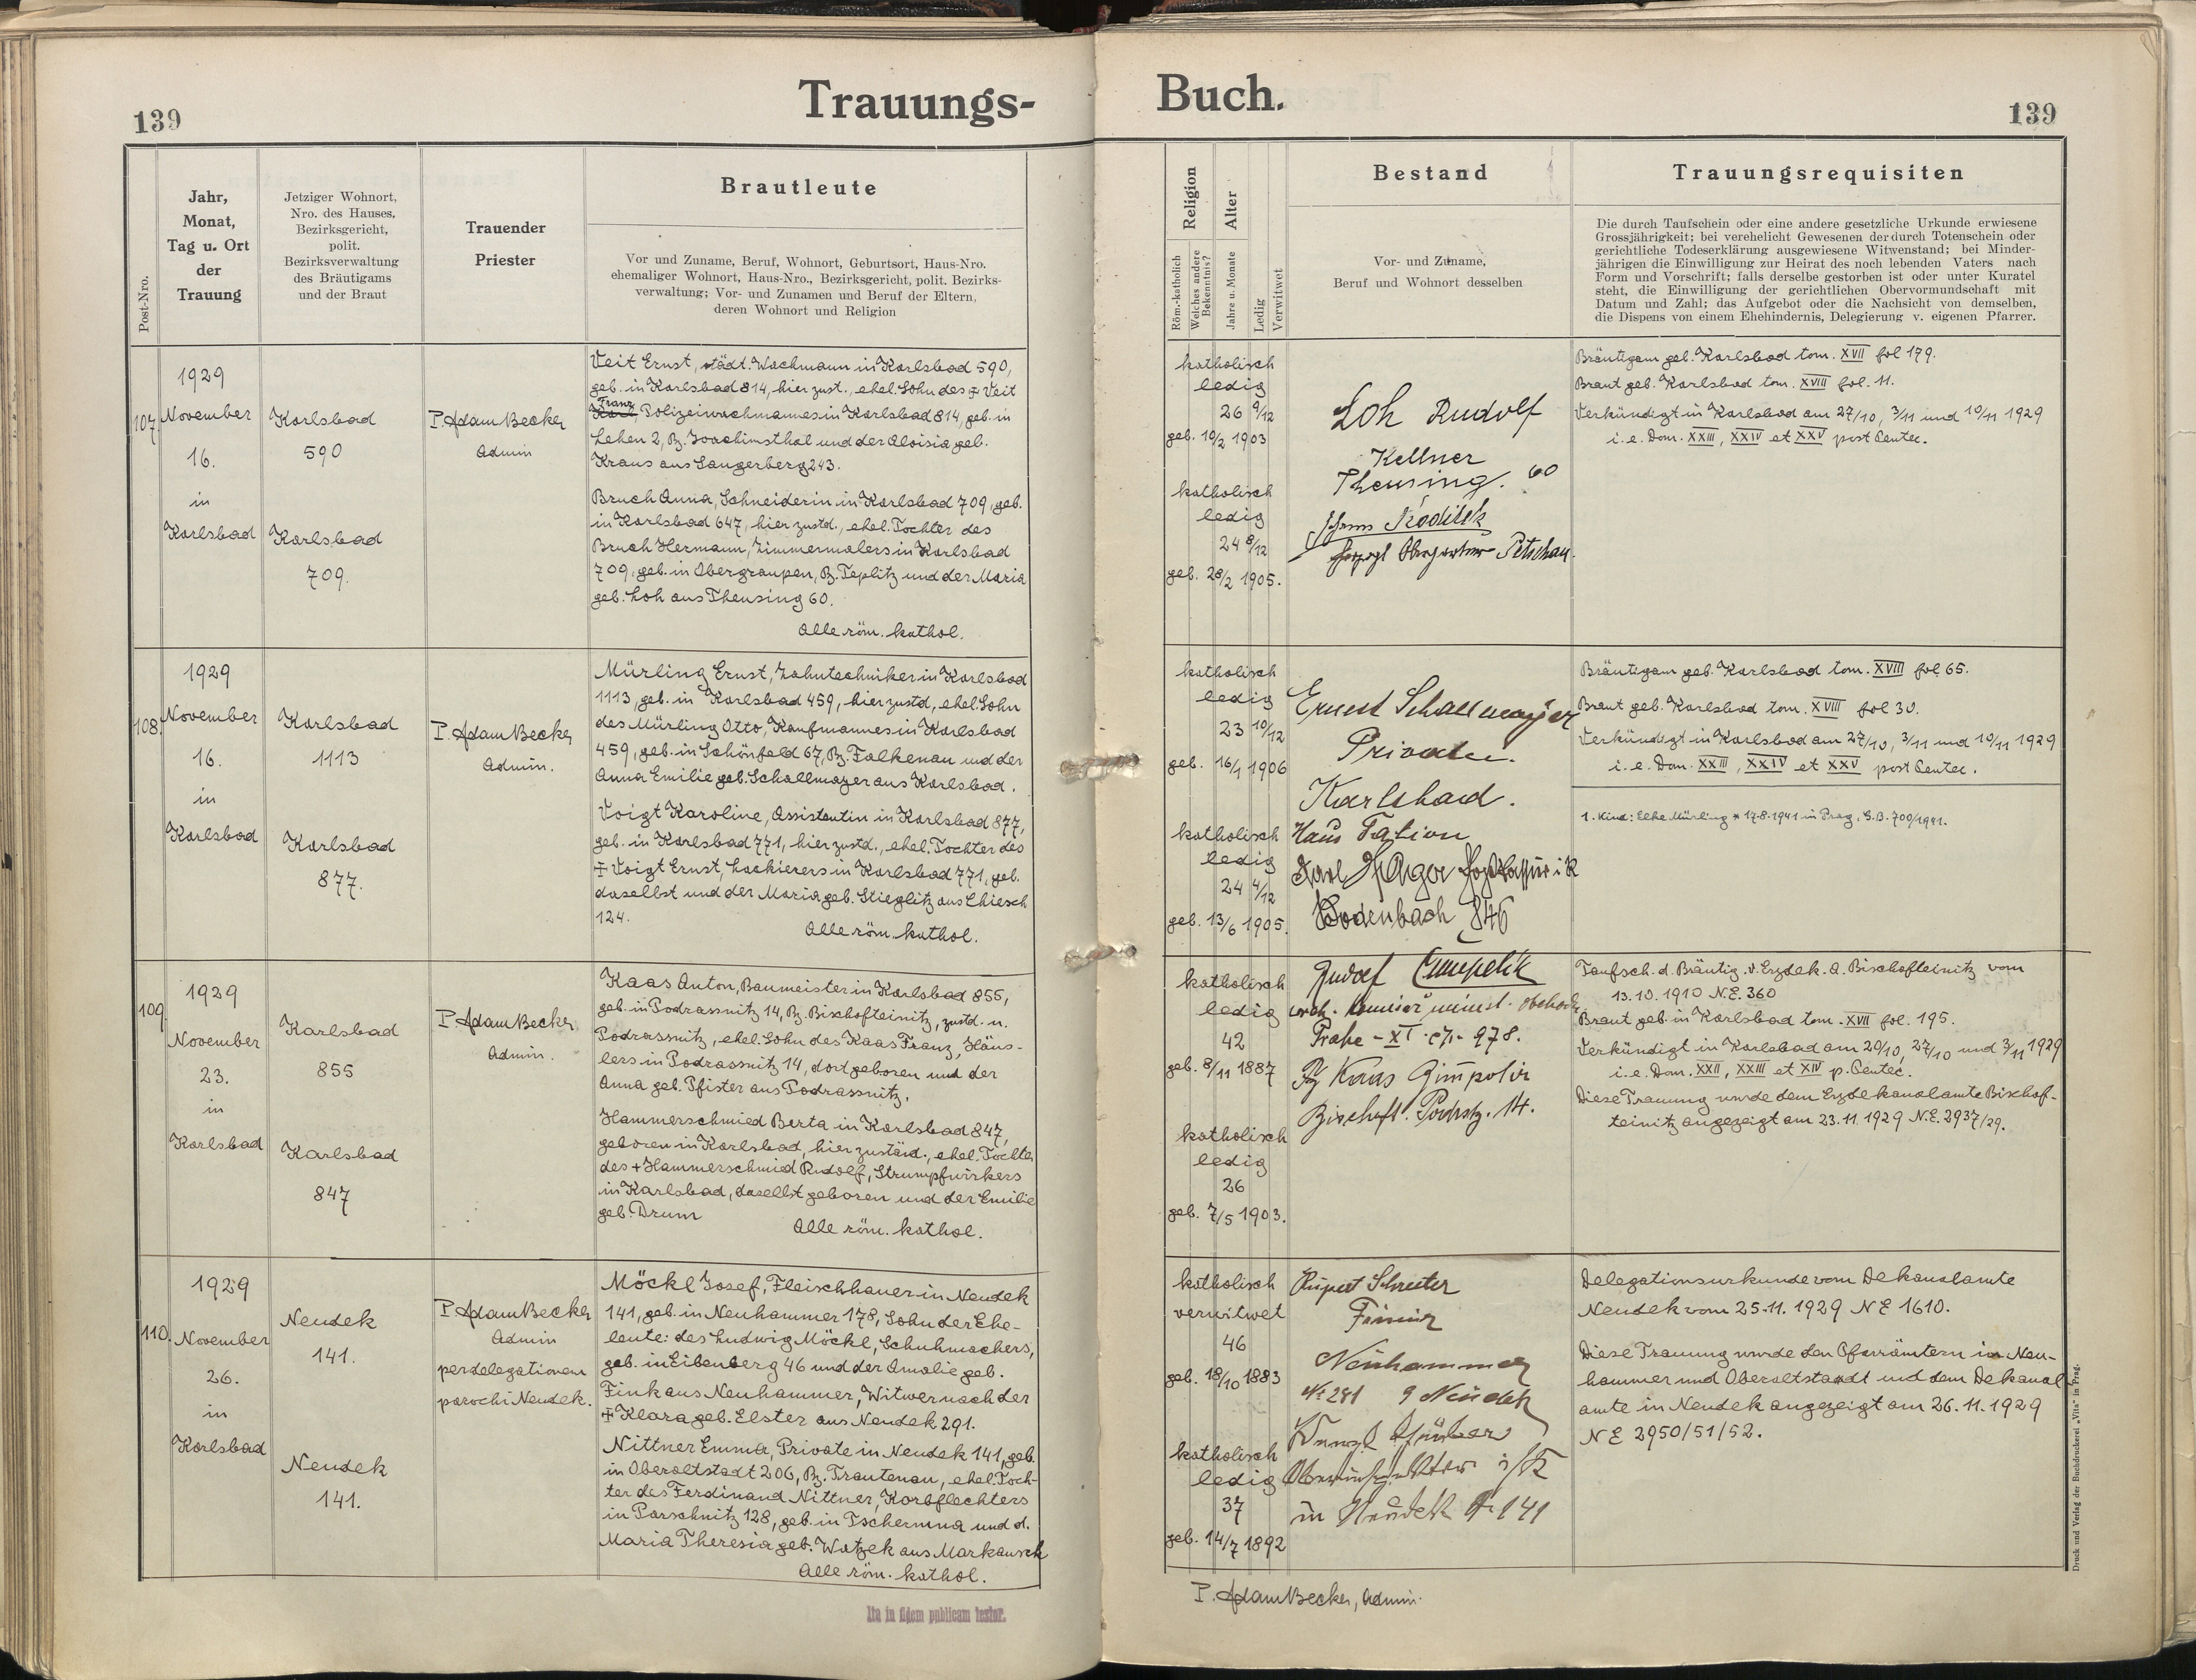 139
Trauungs-
Buch.
139
Post-Nro.
Jahr,
Monat,
Tag u. Ort
der
Trauung
Jetziger Wohnort,
Nro. des Hauses,
Bezirksgericht,
polit.
Bezirksverwaltung
des Bräutigams
und der Braut
Trauender
Priester
Brautleute
Vor und Zuname, Beruf, Wohnort, Geburtsort, Haus-Nro.
ehemaliger Wohnort, Haus-Nro., Bezirksgericht, polit. Bezirks-
verwaltung; Vor- und Zunamen und Beruf der Eltern,
deren Wohnort und Religion
Religion
Röm.-katholisch
Welches andere
Bekenntnis?
Alter
Jahre u. Monate
Ledig
Verwitwet
Bestand
Vor- und Zuname,
Beruf und Wohnort desselben
Trauungsrequisiten
Die durch Taufschein oder eine andere gesetzliche Urkunde erwiesene
Grossjährigkeit; bei verehelicht Gewesenen der durch Totenschein oder
gerichtliche Todeserklärung ausgewiesene Witwenstand; bei Minder-
jährigen die Einwilligung zur Heirat des noch lebenden Vaters nach
Form und Vorschrift; falls derselbe gestorben ist oder unter Kuratel
steht, die Einwilligung der gerichtlichen Obervormundschaft mit
Datum und Zahl; das Aufgebot oder die Nachsicht von demselben,
die Dispens von einem Ehehindernis, Delegierung v. eigenen Pfarrer.
107.
1929
November
16.
in
Karlsbad
Karlsbad
590
Karlsbad
709.
P. Adam Becker
Admin
Veit Ernst, städt. Wachmann in Karlsbad 590,
geb. in Karlsbad 814, hier zust., ehel. Sohn des ‡ Veit
Franz
Karl, Polizeiwachmannes in Karlsbad 814, geb. in
Lehen 2, Bz. Joachimsthal und der Aloisia geb.
Kraus aus Sangerberg 243.
Bruch Anna, Schneiderin in Karlsbad 709, geb.
in Karlsbad 647, hier zustd., ehel. Tochter des
Bruch Hermann, Zimmermalers in Karlsbad
709, geb. in Obergraupen, Bz. Teplitz und der Maria
geb. Loh aus Theusing 60.
Alle röm. kathol.
katholisch
ledig
26 9/12
geb. 10/2 1903
katholisch
ledig
24 8/12
geb. 28/2 1905.
Loh Rudolf
Kellner
Theusing. 60
Petschau.
Bräutigam geb. Karlsbad tom. XVII fol 179.
Braut geb. Karlsbad tom. XVIII fol. 11.
Verkündigt in Karlsbad am 27/10, 3/11 und 10/11 1929
i. e. Dom. XXIII, XXIV et XXV post Pentec.
108.
1929
November
16.
in
Karlsbad
Karlsbad
1113
Karlsbad
877.
P. Adam Becker
Admin.
Mürling Ernst, Zahntechniker in Karlsbad
1113, geb. in Karlsbad 459, hier zustd, ehel. Sohn
des Mürling Otto, Kaufmannes in Karlsbad
459, geb. in Schönfeld 67, Bz. Falkenau und der
Anna Emilie geb. Schallmayer aus Karlsbad.
Voigt Karoline, Assistentin in Karlsbad 877,
geb. in Karlsbad 771, hier zustd., ehel. Tochter des
‡ Voigt Ernst, Lackierers in Karlsbad 771, geb.
daselbst und der Maria geb. Stieglitz aus Chiesch
124.
Alle röm. kathol.
katholisch
ledig
23 10/12
geb. 16/1 1906
katholisch
ledig
24 4/12
geb. 13/6 1905.
Ernest Schallmayer
Privatier.
Karlsbad.
Haus
Karl
Bodenbach 846
Bräutigam geb. Karlsbad tom. XVIII fol 65.
Braut geb. Karlsbad tom. XVIII fol 30.
Verkündigt in Karlsbad am 27/10, 3/11 und 10/11 1929
i. e. Dom. XXIII, XXIV et XXV post Pentec.
1. Kind: Elke Mürling * 17.8.1941 in Prag, G.B. 700/1941.
109.
1929
November
23.
in
Karlsbad
Karlsbad
855
Karlsbad
847
P. Adam Becker
Admin.
Kaas Anton, Baumeister in Karlsbad 855,
geb. in Podrassnitz 14, Bz. Bischofteinitz, zustd. n.
Podrassnitz, ehel. Sohn des Kaas Franz, Häus-
lers in Podrassnitz 14, dort geboren und der
Anna geb. Pfister aus Podrassnitz.
Hammerschmied Berta in Karlsbad 847,
geboren in Karlsbad, hier zuständ., ehel. Tochter
des + Hammerschmied Rudolf, Strumpfwirkers
in Karlsbad, daselbst geboren und der Emilie
geb. Drum
Alle röm. kathol.
katholisch
ledig
42
geb. 8/11 1887
katholisch
ledig
26
geb. 7/5 1903.
Rudolf
Prahe - XI. 978.
Kaas
Bischoft. 14.
Taufsch. d. Bräutig. v. Erzdek. A. Bischofteinitz vom
13.10.1910 N.E. 360
Braut geb. in Karlsbad tom. XVII fol. 195.
Verkündigt in Karlsbad am 20/10, 27/10 und 3/11 1929
i. e. Dom. XXII, XXIII et XIV p. Pentec.
Diese Trauung wurde dem Erzdekanalamte Bischof-
teinitz angezeigt am 23.11.1929 N.E. 2937/29.
110.
1929
November
26.
in
Karlsbad
Neudek
141.
Neudek
141.
P. Adam Becker
Admin
per delegationem
parochi Neudek.
Möckl Josef, Fleischhauer in Neudek
141, geb. in Neuhammer 178, Sohn der Ehe-
leute: des Ludwig Möckl, Schuhmachers,
geb. in Eibenberg 46 und der Amalie geb.
Fink aus Neuhammer, Witwer nach der
‡ Klara geb. Elster aus Neudek 291.
Nittner Emma, Private in Neudek 141, geb.
in Oberaltstadt 206, Bz. Trautenau, ehel. Toch-
ter des Ferdinand Nittner, Korbflechters
in Parschnitz 128, geb. in Tschermna und d.
Maria Theresia geb. Watzek aus Markausch
Alle röm. kathol.
katholisch
verwitwet
46
geb. 18/10 1883
katholisch
ledig
37
geb. 14/7 1892
Rupert
Neuhammer
No 281 Neudek
in Neudek 141
Delegationsurkunde vom Dekanalamte
Neudek vom 25.11.1929 NE 1610.
Diese Trauung wurde den Pfarrämtern in Neu-
hammer und Oberaltstadt und dem Dekanal
amte in Neudek angezeigt am 26.11.1929
NE 2950/51/52.
Ita in fidem publicam testor.
P. Adam Becker, Admin.
Druck und Verlag der Buchdruckerei „Vita" in Prag.